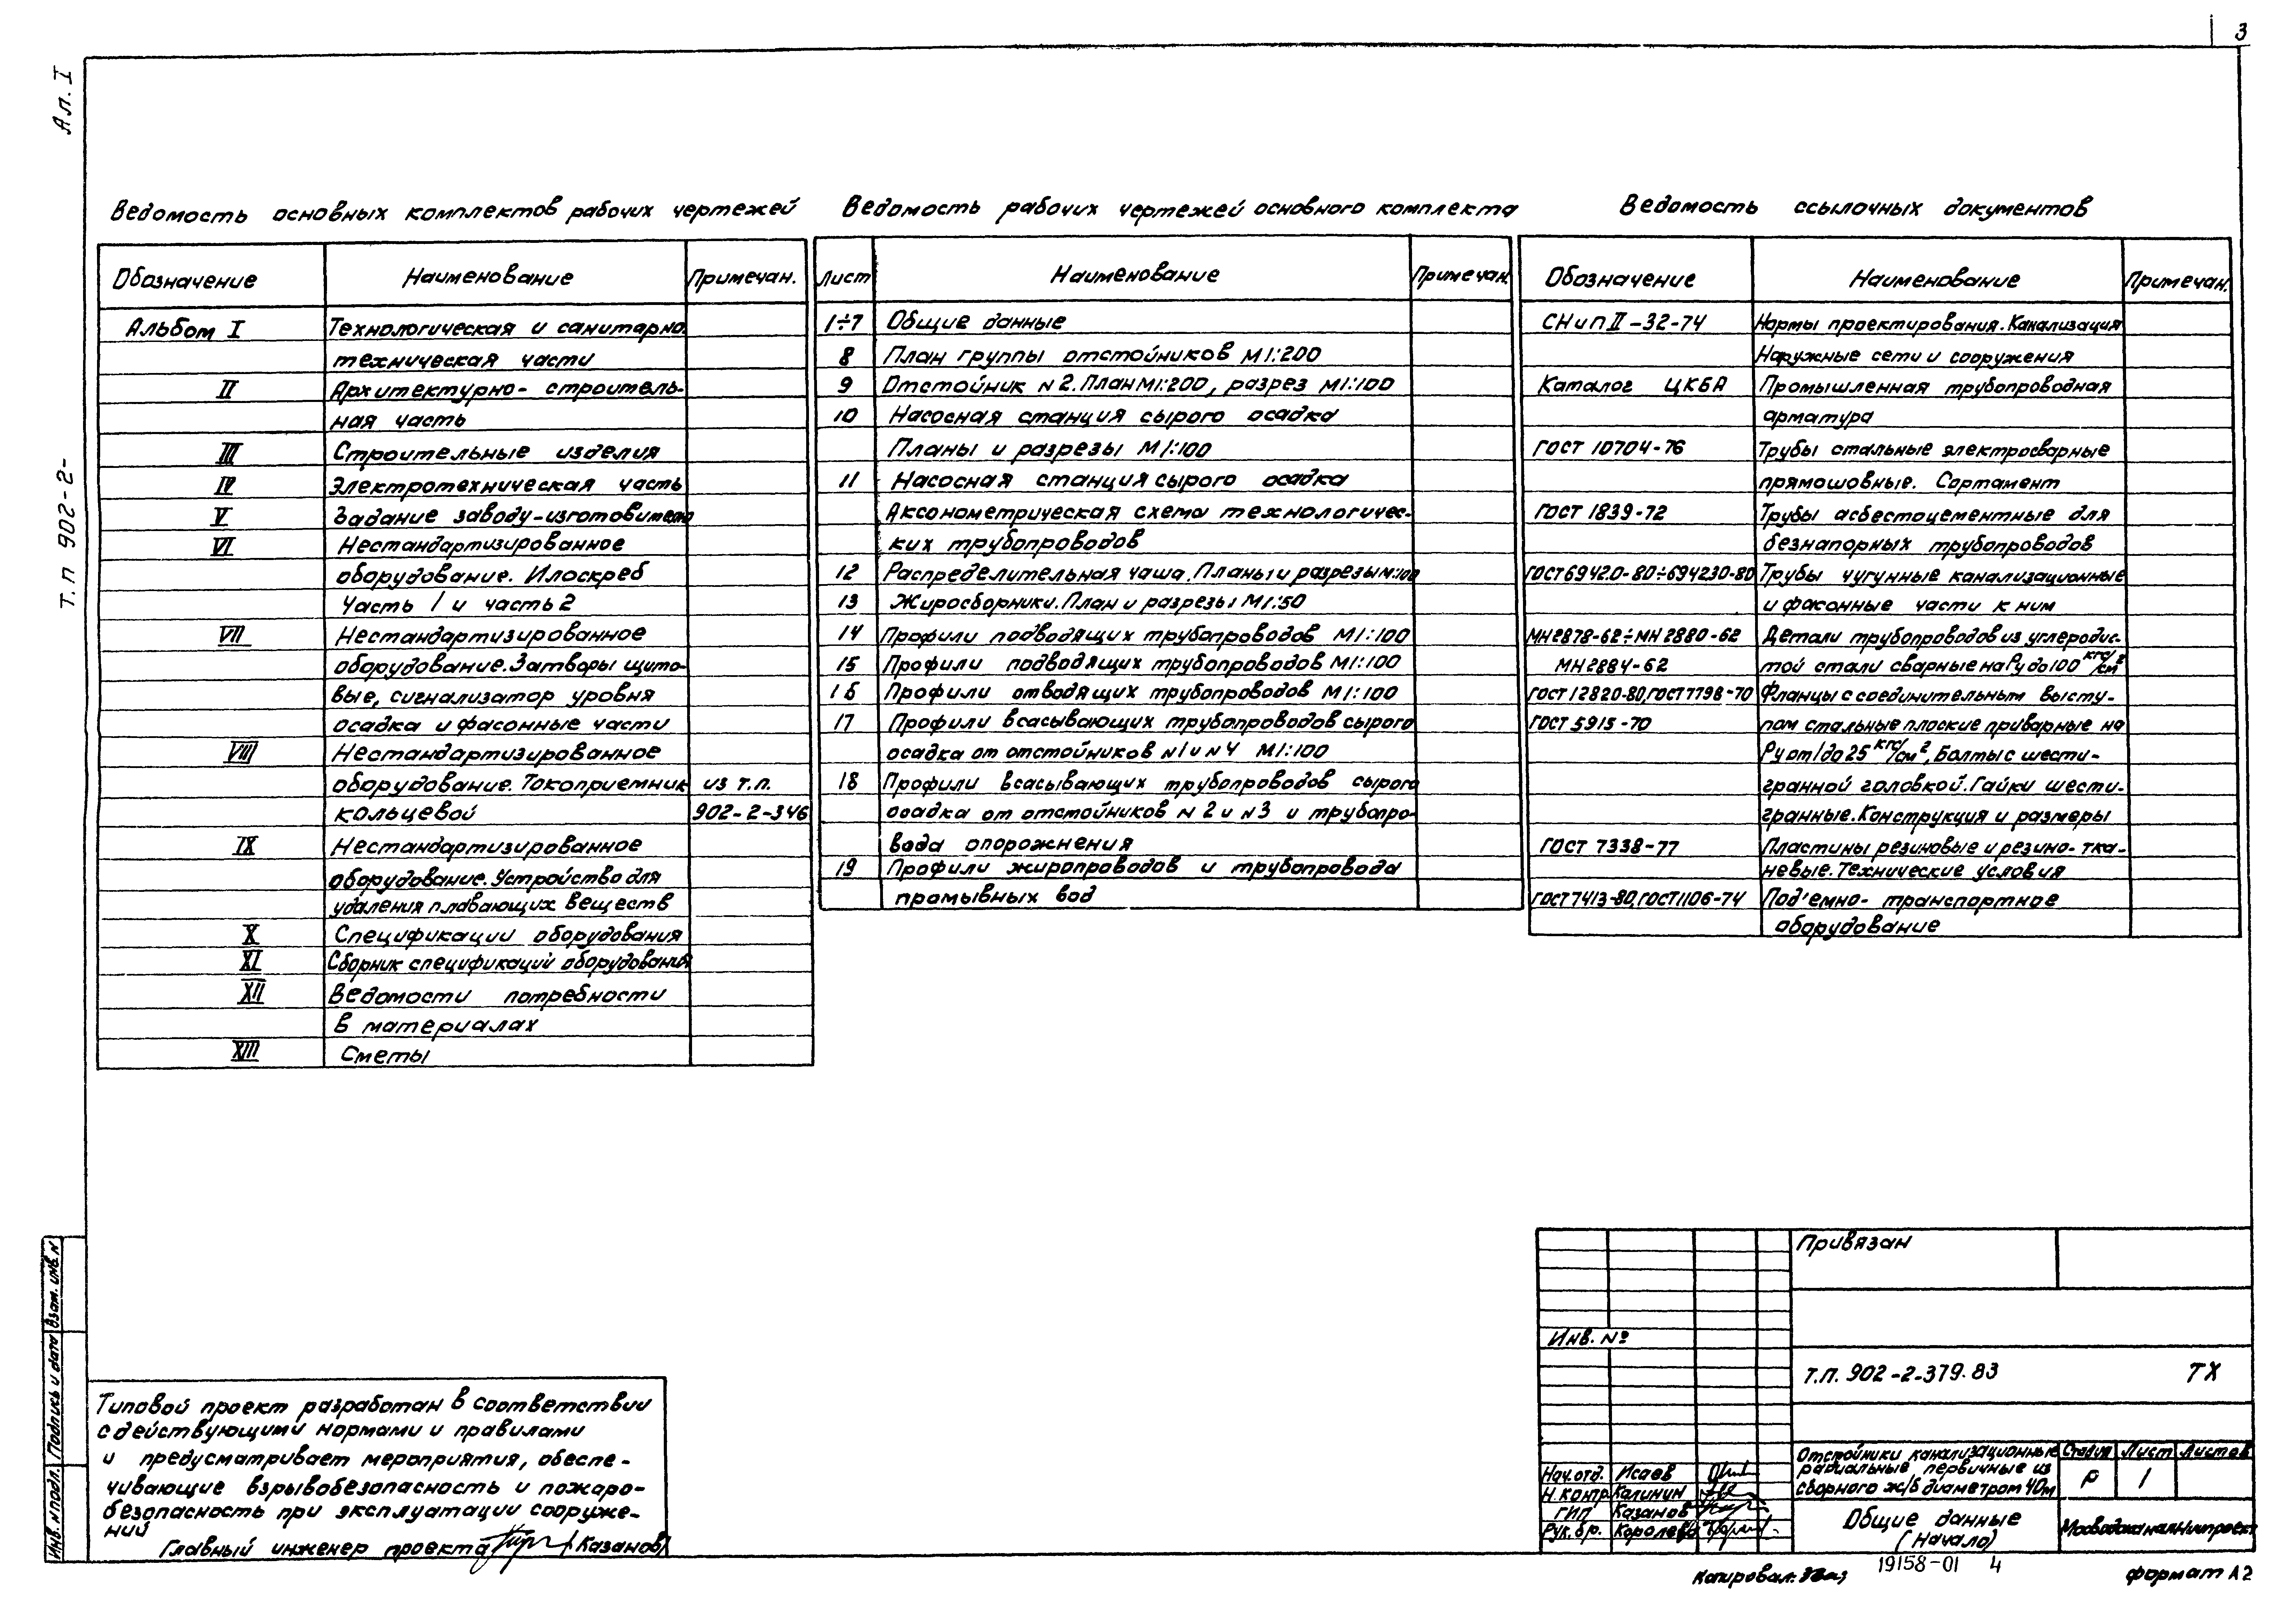 3
Ал. I
Т. п 902-2-
Ведомость основных комплектов рабочих чертежей
Обозначение Наименование Примечан.
Альбом I Технологическая и санитарно
техническая части
II Архитектурно- строитель-
ная часть
III Строительные изделия
IV Электротехническая часть
V Задание заводу-изготовителю
VI Нестандартизированное
оборудование. Илоскреб
Часть 1 и часть 2
VII Нестандартизированное
оборудование. Затворы щито-
вые, сигнализатор уровня
осадка и фасонные части
VIII Нестандартизированное
оборудование. Токоприемник из т.п.
кольцевой 902-2-346
IX Нестандартизированное
оборудование. Устройство для
удаления плавающих веществ
X Спецификации оборудования
XI Сборник спецификаций оборудования
XII Ведомости потребности
в материалах
XIII Сметы
Ведомость рабочих чертежей основного комплекта
Лист Наименование Примечан.
1÷7 Общие данные
8 План группы отстойников М1:200
9 Отстойник N2. План М1:200, разрез М1:100
10 Насосная станция сырого осадка
Планы и разрезы М1:100
11 Насосная станция сырого осадка
Аксонометрическая схема технологичес-
ких трубопроводов
12 Распределительная чаша. Планы и разрезы М1:100
13 Жиросборники. План и разрезы М1:50
14 Профили подводящих трубопроводов М1:100
15 Профили подводящих трубопроводов М1:100
16 Профили отводящих трубопроводов М1:100
17 Профили всасывающих трубопроводов сырого
осадка от отстойников N1 и N4 М1:100
18 Профили всасывающих трубопроводов сырого
осадка от отстойников N2 и N3 и трубопро-
вода опорожнения
19 Профили жиропроводов и трубопровода
промывных вод
Ведомость ссылочных документов
Обозначение Наименование Примечан.
СНиП II-32-74 Нормы проектирования. Канализация
Наружные сети и сооружения
Каталог ЦКБА Промышленная трубопроводная
арматура
ГОСТ 10704-76 Трубы стальные электросварные
прямошовные. Сортамент
ГОСТ 1839-72 Трубы асбестоцементные для
безнапорных трубопроводов
ГОСТ 6942.0-80÷6942.30-80 Трубы чугунные канализационные
и фасонные части к ним
МН2878-62÷МН2880-62 Детали трубопроводов из углеродис-
МН2884-62 той стали сварные на Ру до 100 кгс/см²
ГОСТ 12820-80, ГОСТ 7798-70 Фланцы с соединительным высту-
ГОСТ 5915-70 пом стальные плоские приварные на
Ру от 1 до 25 кгс/см², Болты с шести-
гранной головкой. Гайки шести-
гранные. Конструкция и размеры
ГОСТ 7338-77 Пластины резиновые и резино-тка-
невые. Технические условия
ГОСТ 7413-80, ГОСТ 1106-74 Под'емно- транспортное
оборудование
Взам. инв. N
Подпись и дата
Инв. N подл.
Типовой проект разработан в соответствии
с действующими нормами и правилами
и предусматривает мероприятия, обеспе-
чивающие взрывобезопасность и пожаро-
безопасность при эксплуатации сооруже-
ний
Главный инженер проекта /Казанов/
Привязан
Инв. №
Т.П. 902-2-379.83 ТХ
Нач. отд. Исаев
Н. контр Калинин
ГИП Казанов
Рук. бр. Королева
Отстойники канализационные
радиальные первичные из
сборного ж/б диаметром 40м
Стадия Лист Листов
Р 1
Общие данные
(Начало)
МосводоканалНИИпроект
19158-01 4
Копировал:
формат А2